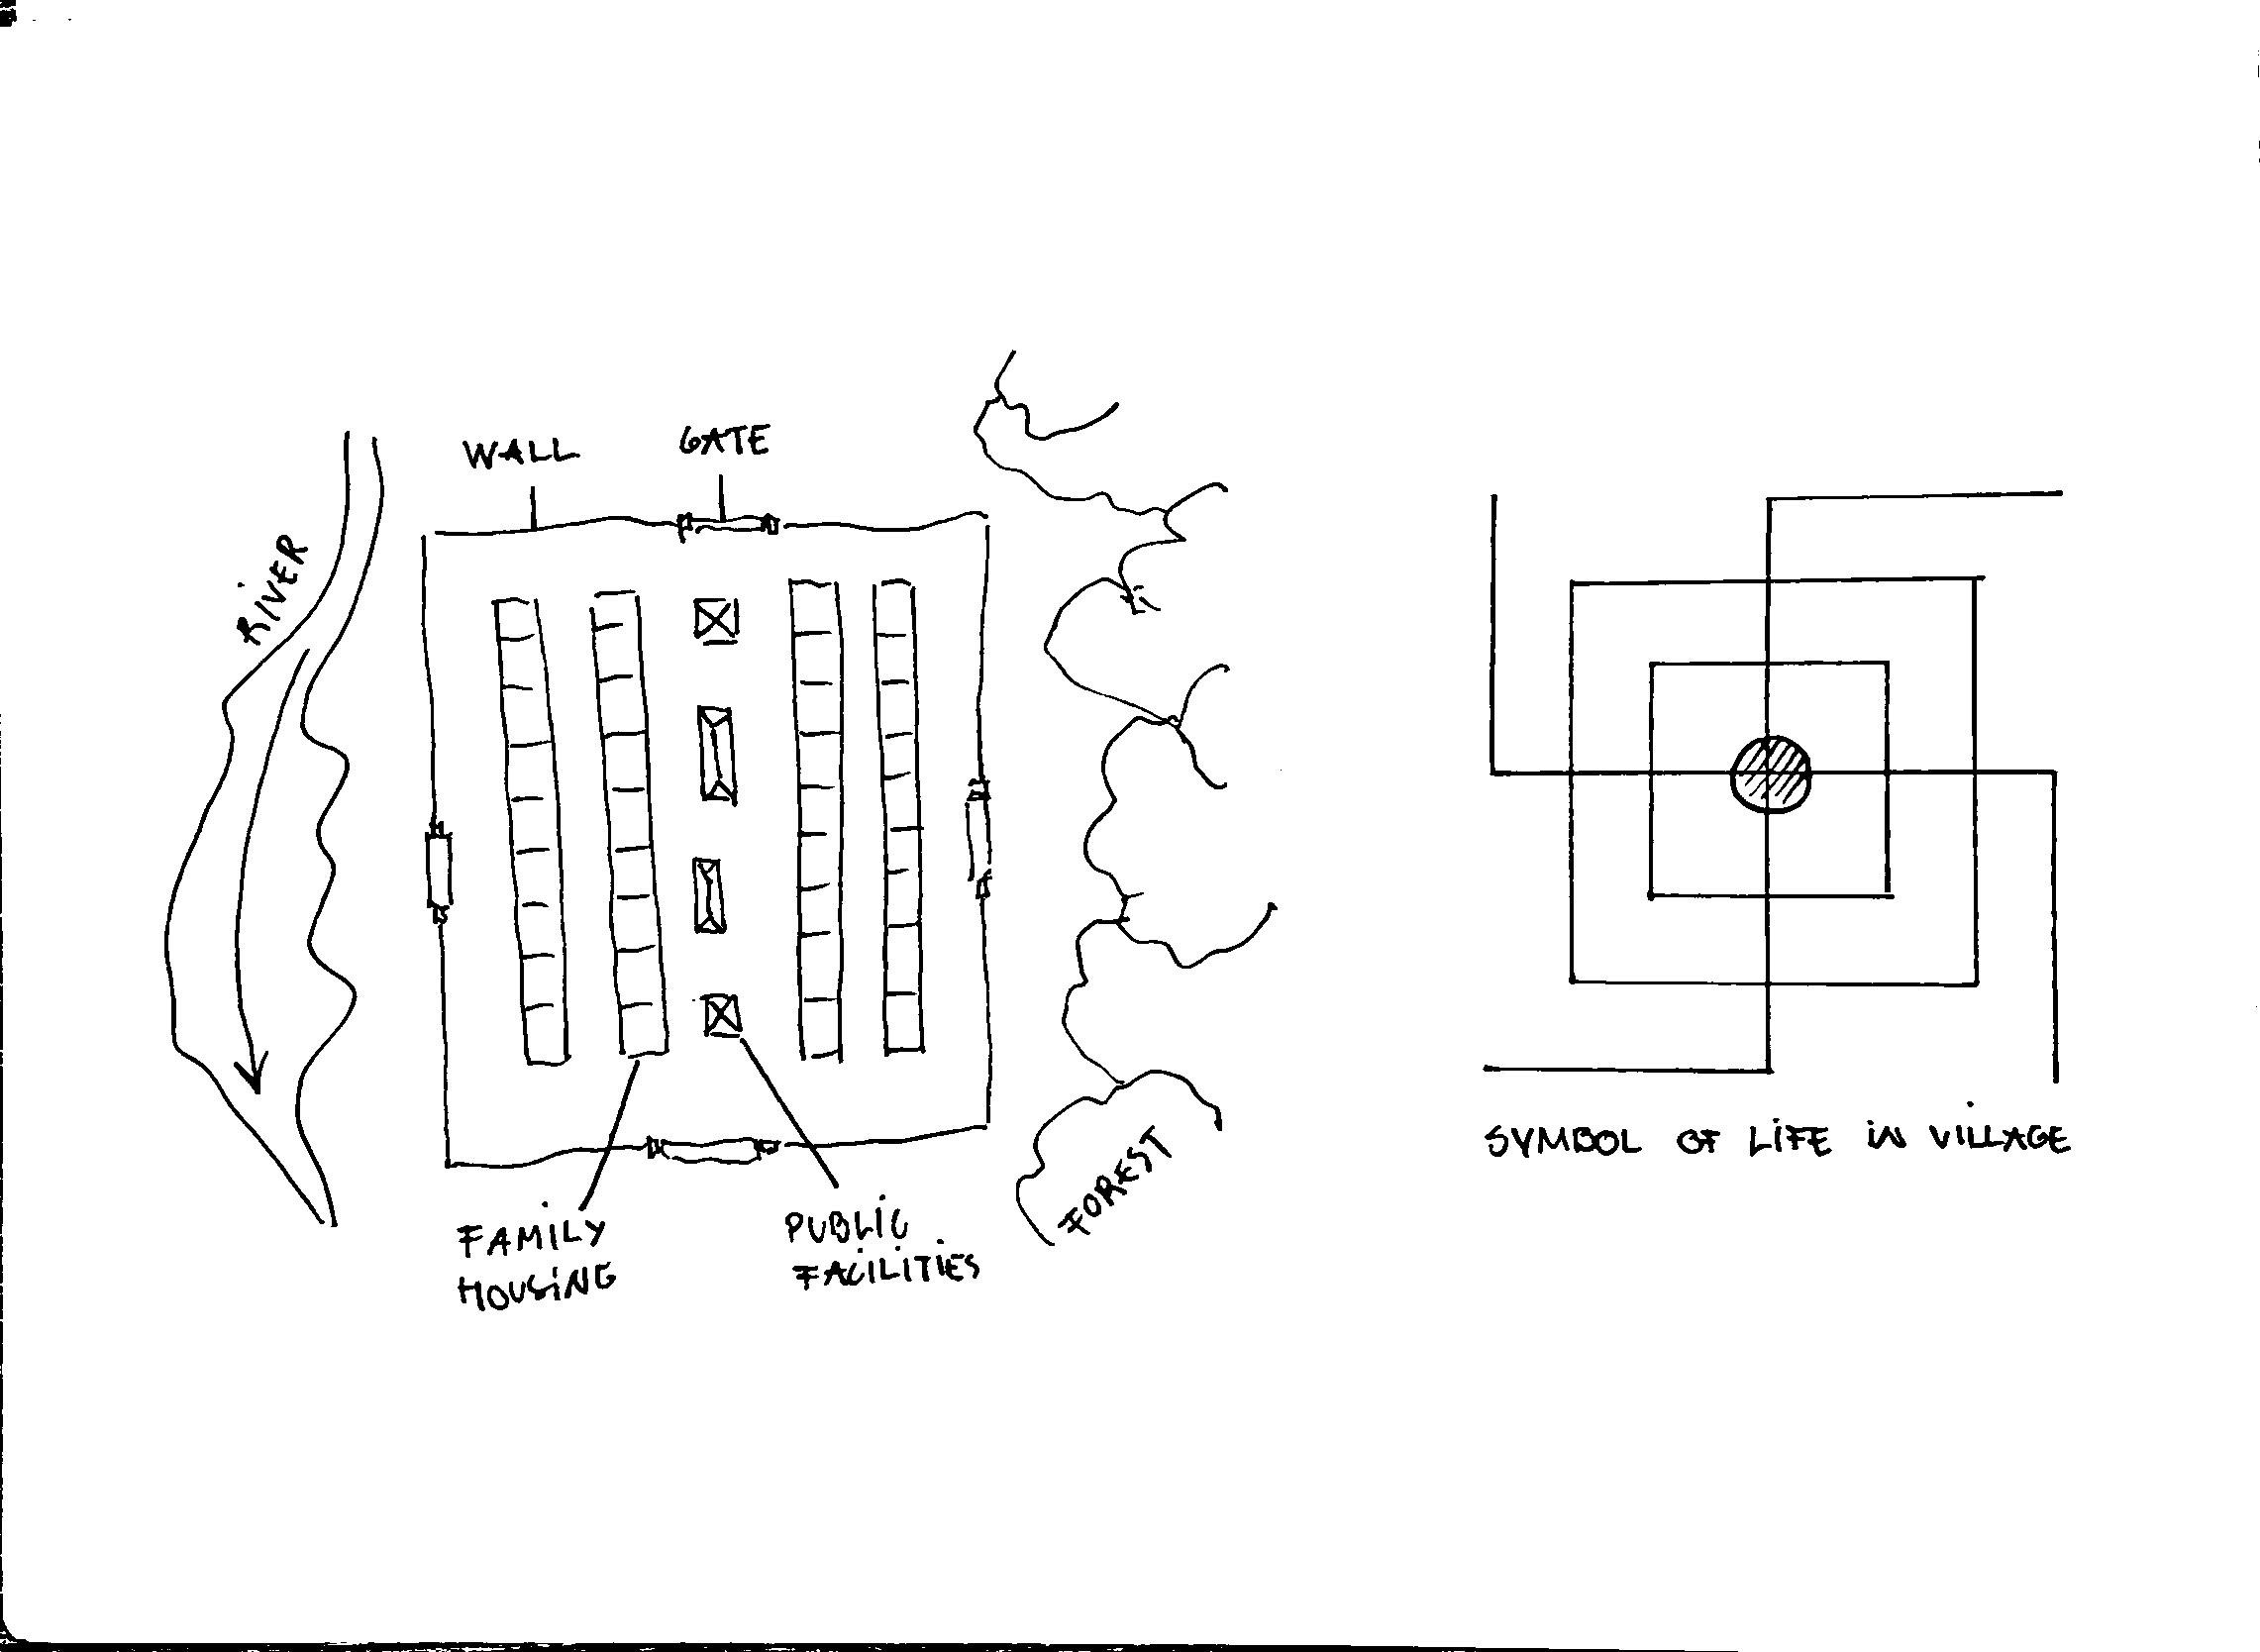 WALL
GATE
RIVER
FAMILY
HOUSING
PUBLIC
FACILITIES
FOREST
SYMBOL OF LIFE IN VILLAGE